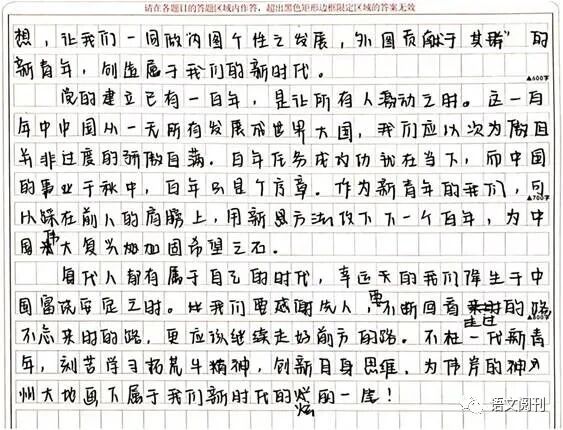 请在各题目的答题区域内作答，超出黑色矩形边框限定区域的答案无效
想，让我们一同做内图个性之发展，外图贡献于其群”的
新青年，创造属于我们的新时代。
▲600字
党的建立已有一百年，是让所有人激动之时。这一百
年中中国从一无所有发展成世界大国，我们应以次为傲但
并非过度的骄傲自满。百年任务成功就在当下，而中国
的事业千秋中，百年只是个序章。作为新青年的我们，可
▲700字
以踩在前人的肩膀上，用新思方法攻下下一个百年，为中
国伟大复兴加固希望之石。
每代人都有属于自己的时代，幸运的我们降生于中
国富流安定之时。我们要感谢先人，要不断回看走过的路
▲800字
不忘来时的路，更应该继续走好前方的路。不枉一代新青
年，刻苦学习拓荒牛精神，创新自身思维，为伟岸的神
州大地画下属于我们新时代的炫烂的一笔！
语文阅刊